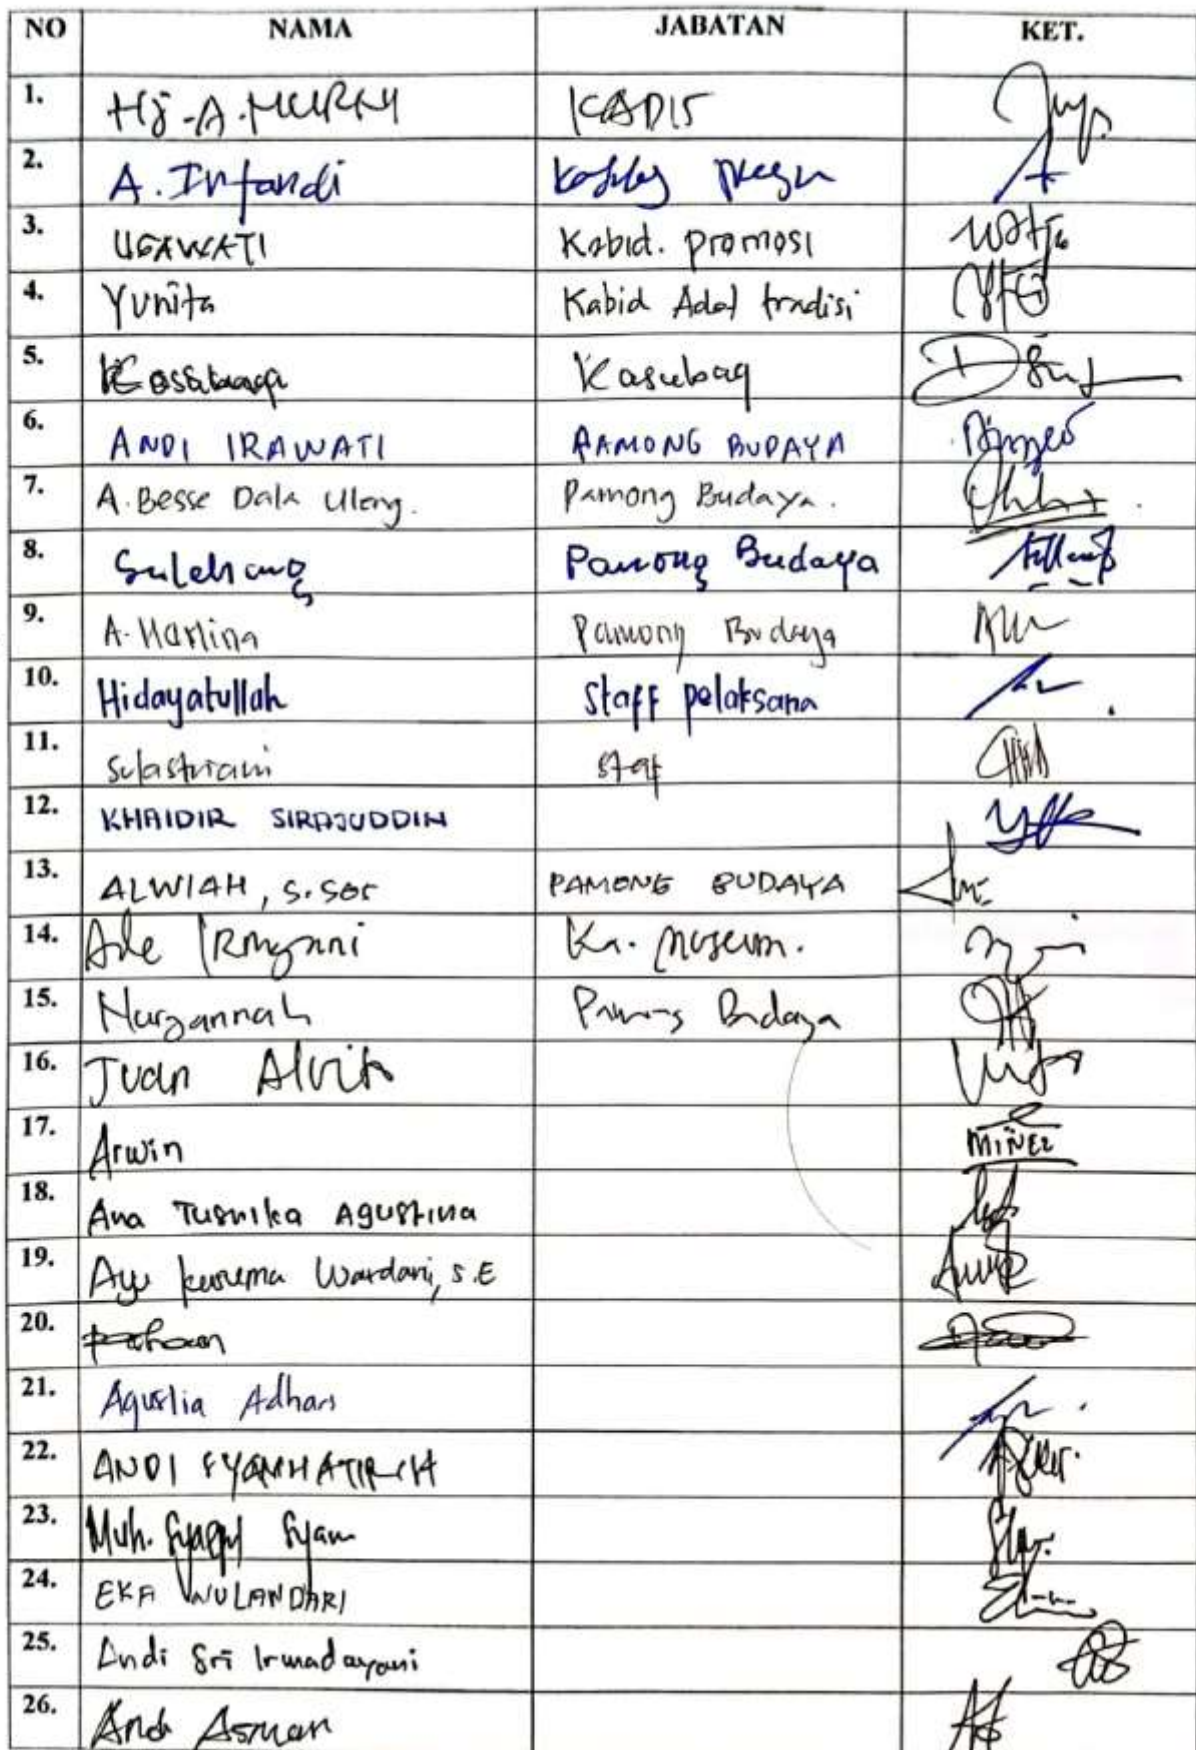 NO NAMA JABATAN KET.
1. Hj. A. MURNI KADIS
2. A. Irfandi
3. USAWATI Kabid. promosi
4. Yunita Kabid Adat tradisi
5. Kasubag Kasubag
6. ANDI IRAWATI PAMONG BUDAYA
7. A. Besse Dala Uleng. Pamong Budaya.
8. Sulehang Pamong Budaya
9. A. Harlina Pamong Budaya
10. Hidayatullah Staff pelaksana
11. Sulastriani Staf
12. KHAIDIR SIRAJUDDIN
13. ALWIAH, S.Sos PAMONG BUDAYA
14. Ade Ka. Museum.
15. Nurjannah Pamong Budaya
16. Juan
17. Arwin MIÑEZ
18. Ana Tusnika Agustina
19. Ayu kusuma Wardani, S.E
20.
21. Agustia Adhars
22. ANDI
23. Muh. Syam
24. EKA WULANDARI
25. Andi Sri Irmadayani
26. Andi Asman